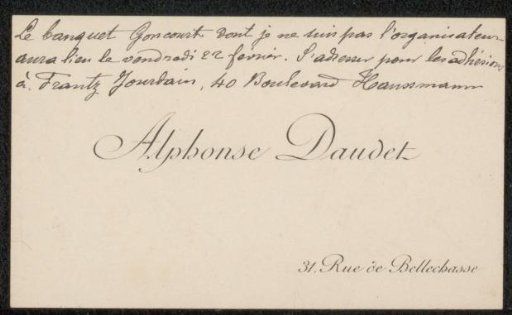 Le banquet Goncourt dont je ne suis pas l'organisateur
aura lieu le vendredi 22 février. S'adresser pour les adhésions
à Frantz Jourdain, 40 Boulevard Haussmann
Alphonse Daudet
31. Rue de Bellechasse